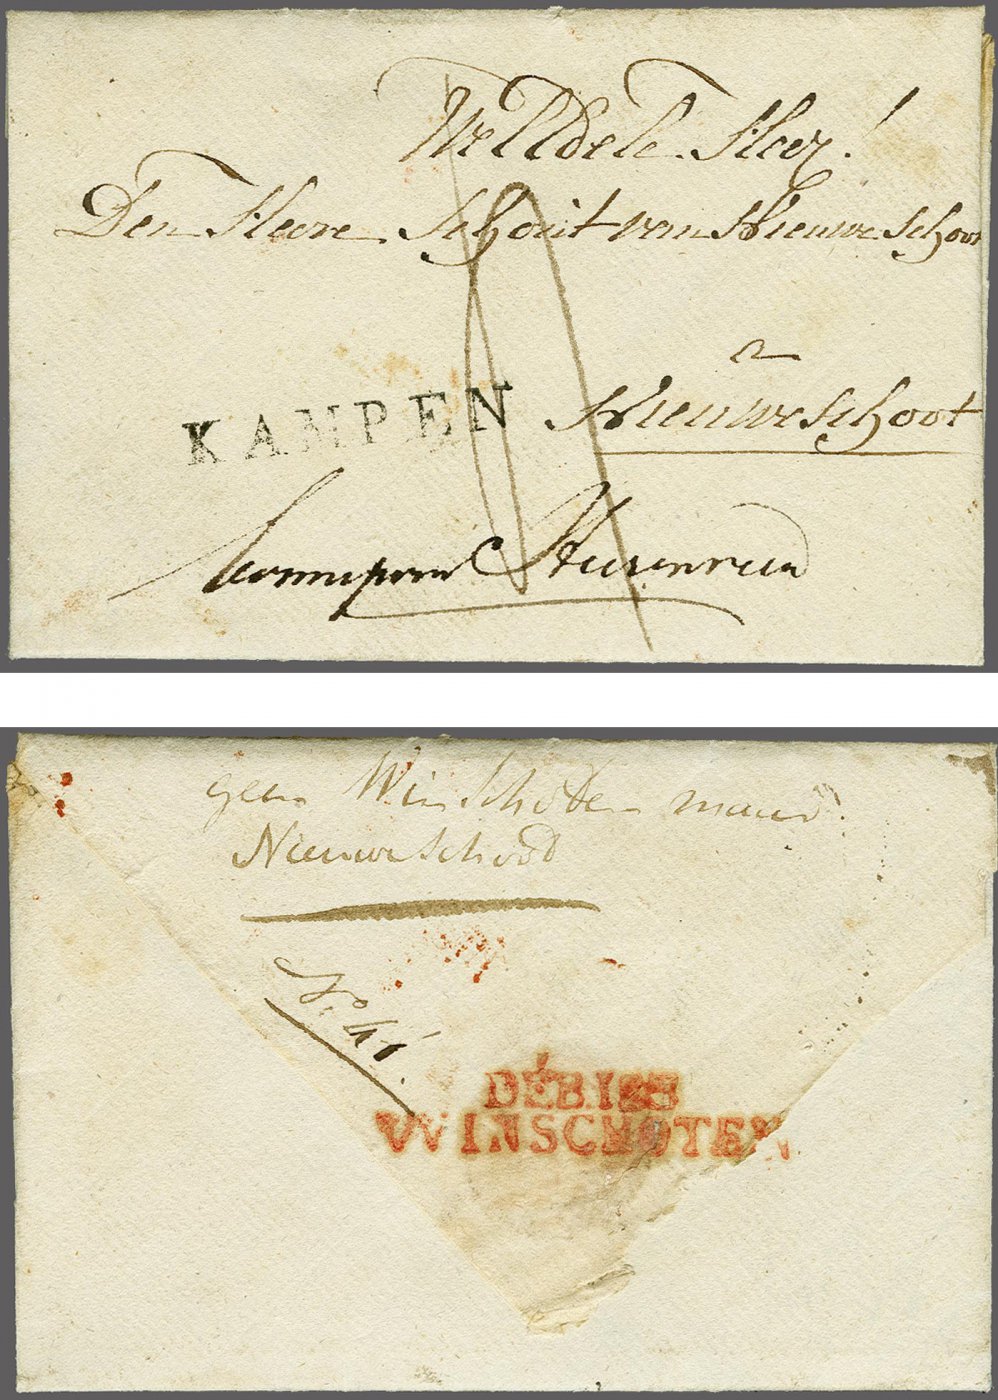 WelEdele Heer!
Den Heere Schout van Nieuwe Schoot
a
Nieuwe Schoot
KAMPEN
Heerenveen
geen Winschoten maar
Nieuwe Schoot
No. 41.
DÉBISÉ
WINSCHOTEN